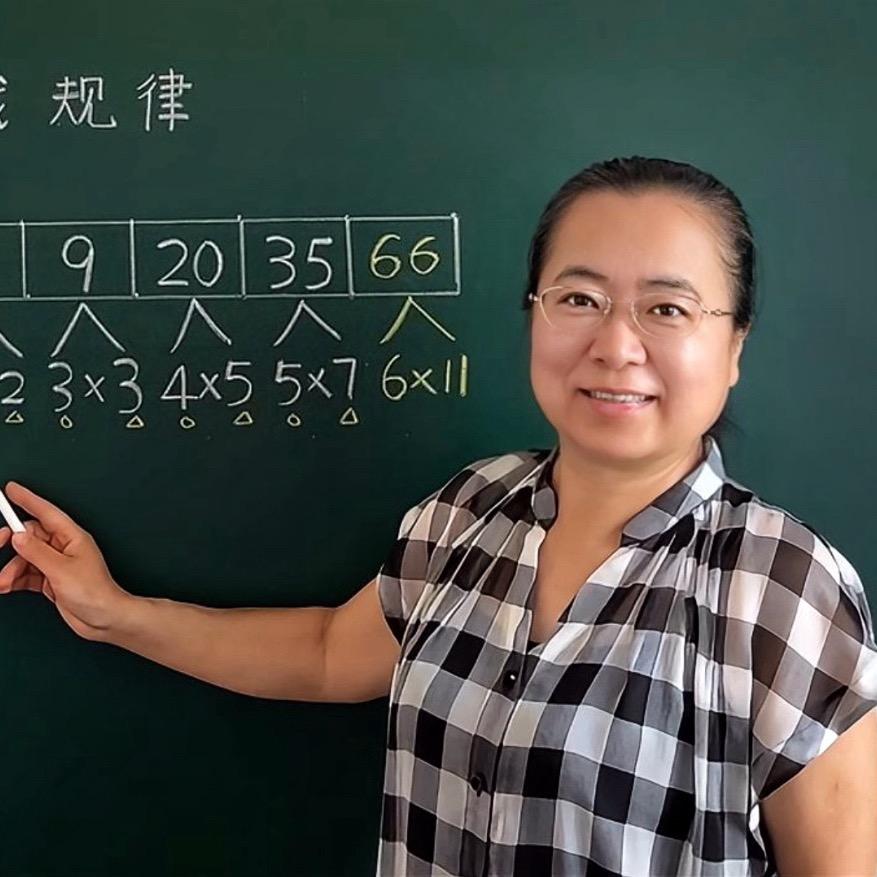 规律
9 20 35 66
2 3×3 4×5 5×7 6×11